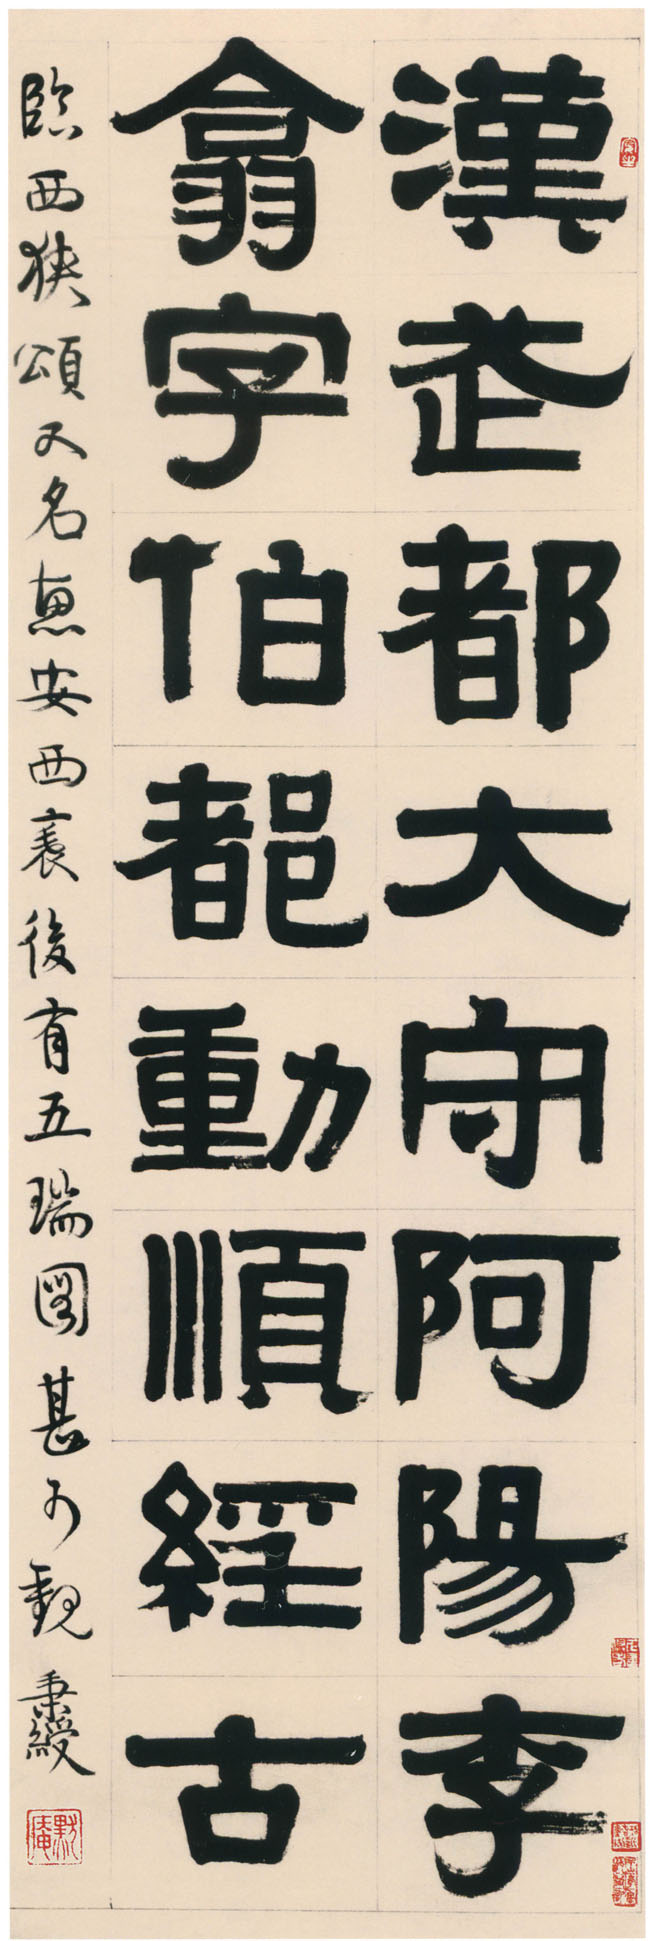 漢武都大守阿陽李
翕字伯都動順經古
臨西狹頌又名惠安西表後有五瑞圖甚可觀秉綬
默庵